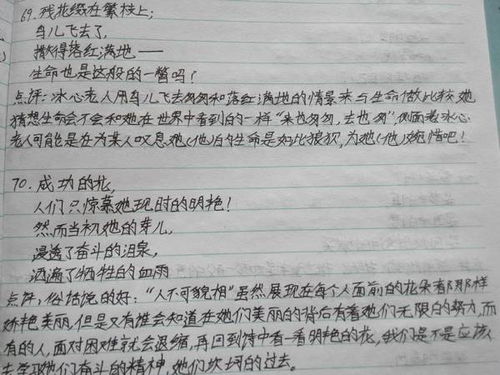 69.残花缀在繁枝上;
鸟儿飞去了,
撒得落红满地——
生命也是这般的一瞥吗?
点评:冰心老人用鸟儿飞去匆匆和落红满地的情景来与生命做比较她
猜想生命会不会和她在世界中看到的一样"来也匆匆,去也匆"侧面看冰心
老人可能是在为某人叹息她(他)的生命是如比狼狈,为她(他)惋惜吧!
70.成功的花,
人们只惊慕她现时的明艳!
然而当初她的芽儿,
浸透了奋斗的泪泉,
洒遍了牺牲的血雨
点评,俗话说的好:"人不可貌相"虽然展现在每个人面前的花朵看那那样
娇艳美丽,但是又有谁会知道在她们美丽的背后有着她们无限的努力,而
有的人,面对困难就会退缩,再回到诗中看一看明艳的花,我们是不是应该
去学取她们奋斗的精神,她们坎坷的过去。